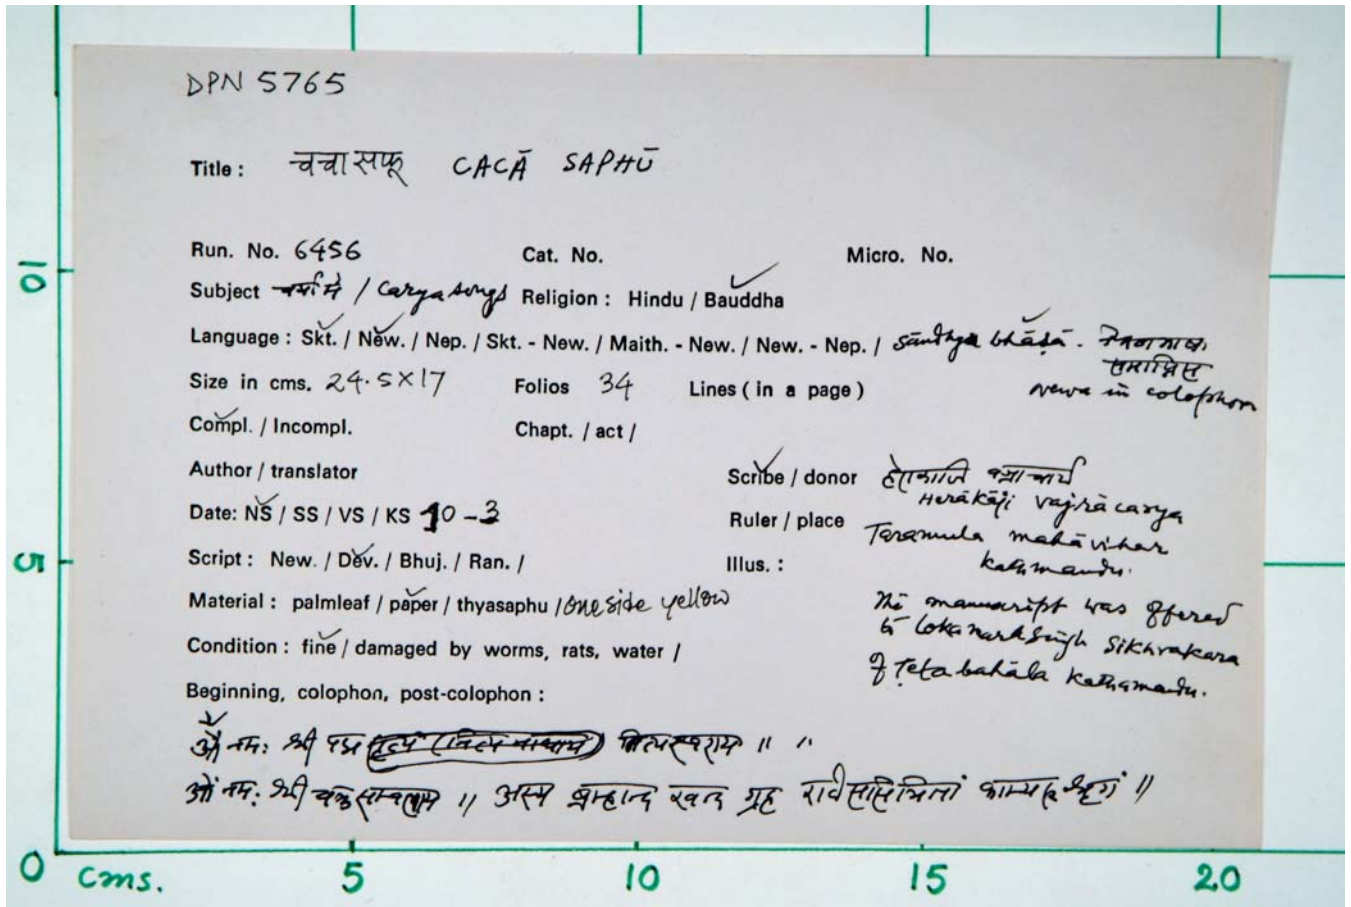 DPN 5765
Title : चचा सफू CACĀ SAPHŪ
Run. No. 6456 Cat. No. Micro. No.
Subject / Carya songs Religion : Hindu / Bauddha
Language : Skt. / New. / Nep. / Skt. - New. / Maith. - New. / New. - Nep. / Sandhya bhāṣā.
Newa in colophon
Size in cms. 24.5×17 Folios 34 Lines ( in a page )
Compl. / Incompl. Chapt. / act /
Author / translator Scribe / donor हेराकाजि वज्राचार्य
Herākāji Vajrācarya
Date: NS / SS / VS / KS 10-3 Ruler / place Taramula mahāvihar
Kathmandu.
Script : New. / Dev. / Bhuj. / Ran. / Illus. :
Material : palmleaf / paper / thyasaphu / one side yellow
The manuscript was offered
to Lokanark Singh Sikhrakara
of Teta bahāla Kathamandu.
Condition : fine / damaged by worms, rats, water /
Beginning, colophon, post-colophon :
ओं नमः श्री पद्म ॥ ॥
ओं नमः श्री चक्रसम्वराय ॥ अस्य ब्रम्हान्द खन्द ग्रह ॥
0 cms. 5 10 15 20
5
10